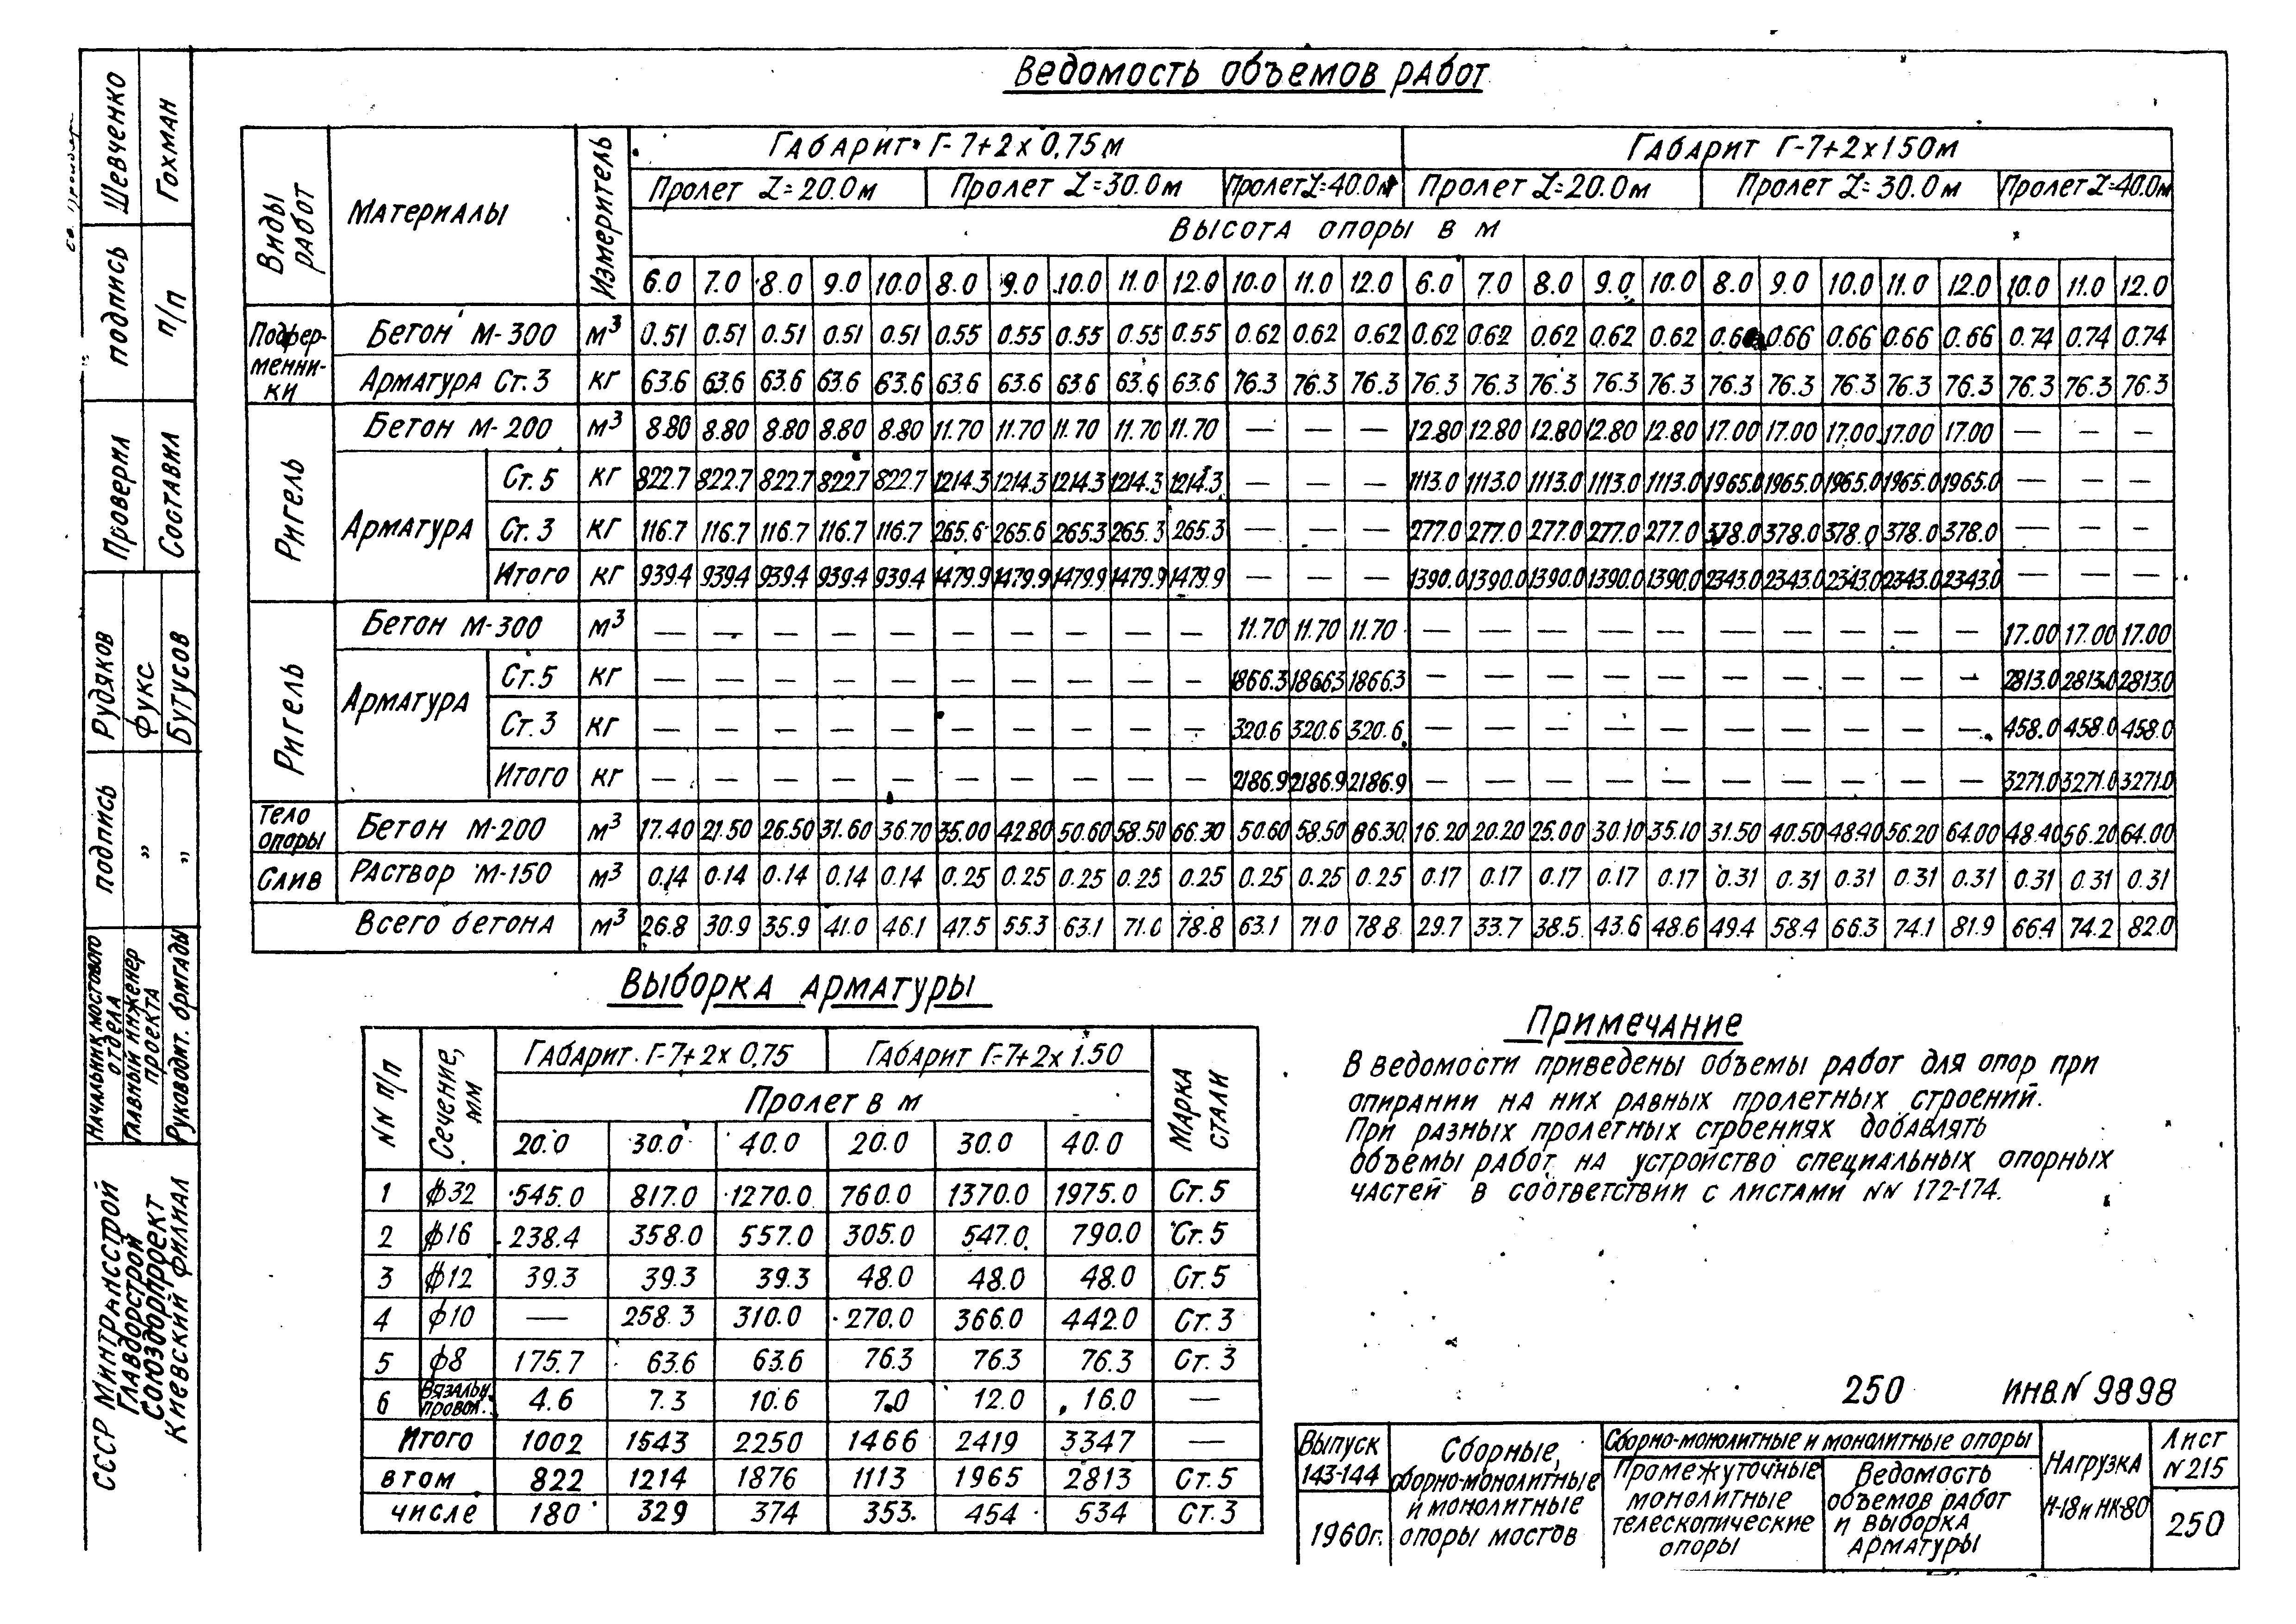 Ведомость объемов работ
Виды работ | Материалы | Измеритель | Габарит Г-7+2х0,75м | Габарит Г-7+2х1.50м
Пролет L=20.0м | Пролет L=30.0м | Пролет L=40.0м | Пролет L=20.0м | Пролет L=30.0м | Пролет L=40.0м
Высота опоры в м
6.0 7.0 8.0 9.0 10.0 8.0 9.0 10.0 11.0 12.0 10.0 11.0 12.0 6.0 7.0 8.0 9.0 10.0 8.0 9.0 10.0 11.0 12.0 10.0 11.0 12.0
Подферменники
Бетон М-300 м³ 0.51 0.51 0.51 0.51 0.51 0.55 0.55 0.55 0.55 0.55 0.62 0.62 0.62 0.62 0.62 0.62 0.62 0.62 0.66 0.66 0.66 0.66 0.66 0.74 0.74 0.74
Арматура Ст.3 кг 63.6 63.6 63.6 63.6 63.6 63.6 63.6 63.6 63.6 63.6 76.3 76.3 76.3 76.3 76.3 76.3 76.3 76.3 76.3 76.3 76.3 76.3 76.3 76.3 76.3 76.3
Ригель
Бетон М-200 м³ 8.80 8.80 8.80 8.80 8.80 11.70 11.70 11.70 11.70 11.70 — — — 12.80 12.80 12.80 12.80 12.80 17.00 17.00 17.00 17.00 17.00 — — —
Арматура
Ст.5 кг 822.7 822.7 822.7 822.7 822.7 1214.3 1214.3 1214.3 1214.3 1214.3 — — — 1113.0 1113.0 1113.0 1113.0 1113.0 1965.0 1965.0 1965.0 1965.0 1965.0 — — —
Ст.3 кг 116.7 116.7 116.7 116.7 116.7 265.6 265.6 265.3 265.3 265.3 — — — 277.0 277.0 277.0 277.0 277.0 378.0 378.0 378.0 378.0 378.0 — — —
Итого кг 939.4 939.4 939.4 939.4 939.4 1479.9 1479.9 1479.9 1479.9 1479.9 — — — 1390.0 1390.0 1390.0 1390.0 1390.0 2343.0 2343.0 2343.0 2343.0 2343.0 — — —
Ригель
Бетон М-300 м³ — — — — — — — — — — 11.70 11.70 11.70 — — — — — — — — — — 17.00 17.00 17.00
Арматура
Ст.5 кг — — — — — — — — — — 1866.3 1866.3 1866.3 — — — — — — — — — — 2813.0 2813.0 2813.0
Ст.3 кг — — — — — — — — — — 320.6 320.6 320.6 — — — — — — — — — — 458.0 458.0 458.0
Итого кг — — — — — — — — — — 2186.9 2186.9 2186.9 — — — — — — — — — — 3271.0 3271.0 3271.0
Тело опоры Бетон М-200 м³ 17.40 21.50 26.50 31.60 36.70 35.00 42.80 50.60 58.50 66.30 50.60 58.50 66.30 16.20 20.20 25.00 30.10 35.10 31.50 40.50 48.40 56.20 64.00 48.40 56.20 64.00
Слив Раствор М-150 м³ 0.14 0.14 0.14 0.14 0.14 0.25 0.25 0.25 0.25 0.25 0.25 0.25 0.25 0.17 0.17 0.17 0.17 0.17 0.31 0.31 0.31 0.31 0.31 0.31 0.31 0.31
Всего бетона м³ 26.8 30.9 35.9 41.0 46.1 47.5 55.3 63.1 71.0 78.8 63.1 71.0 78.8 29.7 33.7 38.5 43.6 48.6 49.4 58.4 66.3 74.1 81.9 66.4 74.2 82.0
Выборка арматуры
NN п/п | Сечение, мм | Габарит Г-7+2х0,75 | Габарит Г-7+2х1.50 | Марка стали
Пролет в м
20.0 30.0 40.0 20.0 30.0 40.0
1 ф32 545.0 817.0 1270.0 760.0 1370.0 1975.0 Ст.5
2 ф16 238.4 358.0 557.0 305.0 547.0 790.0 Ст.5
3 ф12 39.3 39.3 39.3 48.0 48.0 48.0 Ст.5
4 ф10 — 258.3 310.0 270.0 366.0 442.0 Ст.3
5 ф8 175.7 63.6 63.6 76.3 76.3 76.3 Ст.3
6 Вязальн. провол. 4.6 7.3 10.6 7.0 12.0 16.0 —
Итого 1002 1543 2250 1466 2419 3347 —
в том 822 1214 1876 1113 1965 2813 Ст.5
числе 180 329 374 353 454 534 Ст.3
Примечание
В ведомости приведены объемы работ для опор при
опирании на них равных пролетных строений.
При разных пролетных строениях добавлять
объемы работ на устройство специальных опорных
частей в соответствии с листами NN 172-174.
250 ИНВ.N 9898
Выпуск
143-144
1960г.
Сборные,
сборно-монолитные
и монолитные
опоры мостов
Сборно-монолитные и монолитные опоры
Промежуточные
монолитные
телескопические
опоры
Ведомость
объемов работ
и выборка
арматуры
Нагрузка
Н-18 и НК-80
Лист
N215
250
СССР Минтрансстрой
Главдорстрой
Союздорпроект
Киевский филиал
Начальник мостового отдела | подпись | Рудяков
Главный инженер проекта | „ | Фукс
Руководит. бригады | „ | Бутусов
Проверил | подпись | Шевченко
Составил | п/п | Гохман